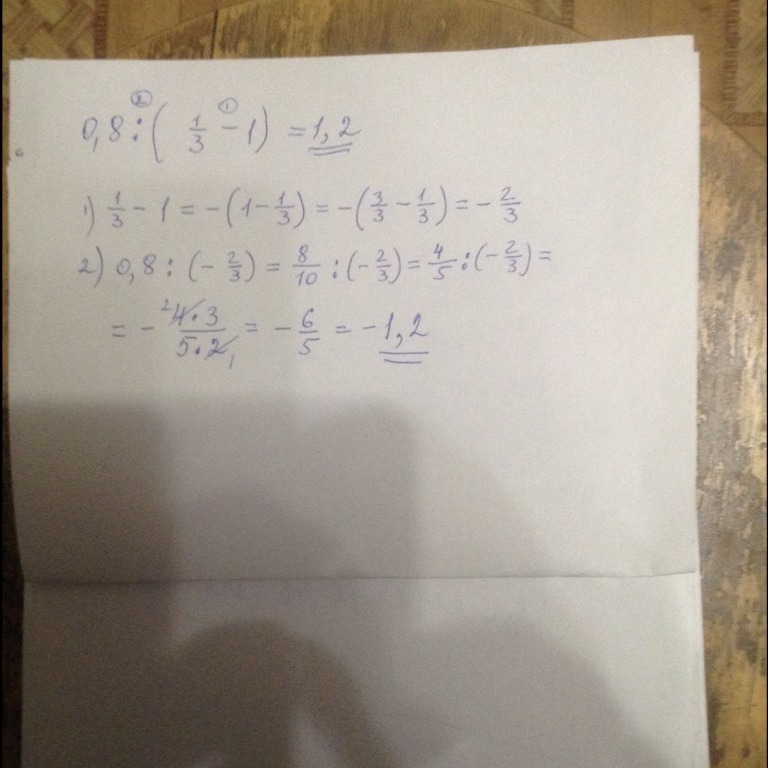 ② ①
0,8 : ( 1/3 - 1) = 1,2
1) 1/3 - 1 = -(1 - 1/3) = -(3/3 - 1/3) = - 2/3
2) 0,8 : (- 2/3) = 8/10 : (- 2/3) = 4/5 : (- 2/3) =
= - ²4·3/5·2₁ = - 6/5 = - 1,2